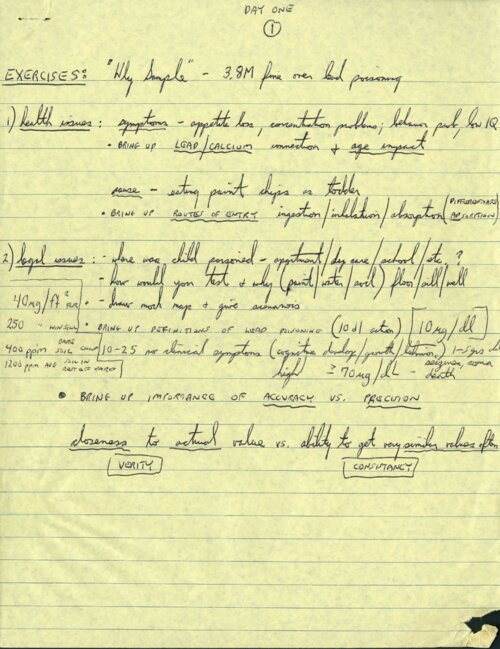 DAY ONE
1
EXERCISES: "Why Sample" - 3.8M fine over lead poisoning
1) health issues: symptoms - appetite loss, concentration problems; behavior prob, low IQ
• BRING UP LEAD/CALCIUM connection & age impact
cause - eating paint chips as toddler
• BRING UP ROUTES OF ENTRY ingestion/inhalation/absorption (DIFFERENTIATE ABSORPTION)
2) legal issues: - where was child poisoned - apartment/day care/school/etc.?
- how would you test & why (paint/water/soil) floor/sill/well
40 µg/ft² FLR • - draw mock map & give scenarios
250 " WIN SILL • BRING UP DEFINITIONS OF LEAD POISONING (10 dl action) [10 µg/dl]
400 ppm BARE SOIL 10-25 no clinical symptoms (cognitive develop/growth/behavior) 1-5 yrs
1200 ppm AVG SOIL IN REST OF high ≥ 70 µg/dL - seizures, coma death
• BRING UP IMPORTANCE OF ACCURACY VS. PRECISION
closeness to actual value vs. ability to get very similar values often
VERITY CONSISTANCY